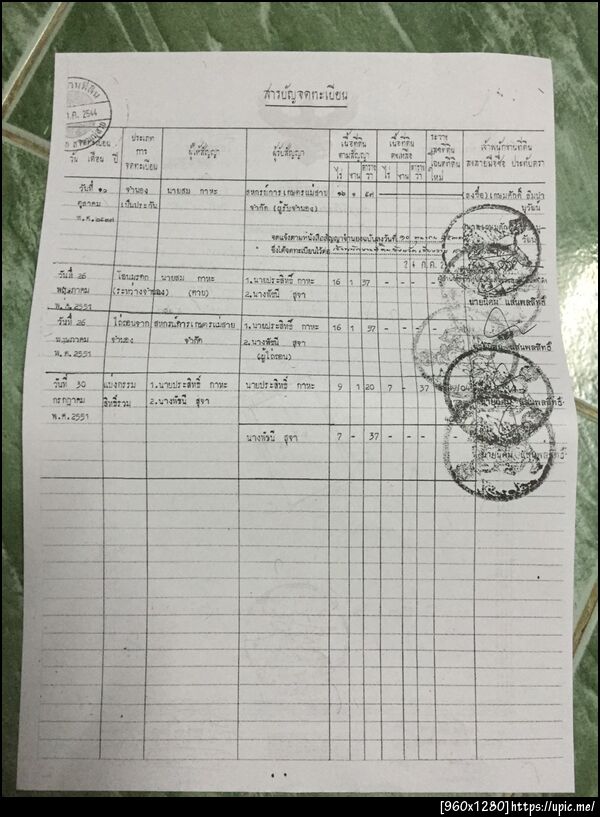 สารบัญจดทะเบียน
ค. 2544
จดทะเบียน
วัน เดือน ปี
ประเภท
การ
จดทะเบียน
ผู้ให้สัญญา
ผู้รับสัญญา
เนื้อที่ดิน
ตามสัญญา
ไร่ งาน ตาราง
วา
เนื้อที่ดิน
คงเหลือ
ไร่ งาน ตาราง
วา
ระวาง
เลขที่ดิน
โฉนดที่ดิน
ใหม่
เจ้าพนักงานที่ดิน
ลงลายมือชื่อ ประทับตรา
วันที่ ๑๐ จำนอง นายสม กาหะ สหกรณ์การเกษตรแม่สาย ๑๖ ๑ ๕๗ (ลงชื่อ)
ตุลาคม เป็นประกัน จำกัด (ผู้รับจำนอง)
พ.ศ.๒๕๓๗
วันที่ 26 โอนมรดก นายสม กาหะ 1.นายประสิทธิ์ กาหะ 16 1 57
พฤษภาคม (ระหว่างจำนอง) (ตาย) 2.นางพัชนี สุจา
พ.ศ.2551
นายนิคม แสนพลสิทธิ์
วันที่ 26 ไถ่ถอนจาก สหกรณ์การเกษตรแม่สาย 1.นายประสิทธิ์ กาหะ 16 1 57
พฤษภาคม จำนอง จำกัด 2.นางพัชนี สุจา
พ.ศ.2551 (ผู้ไถ่ถอน)
แสนพลสิทธิ์
วันที่ 30 แบ่งกรรม 1.นายประสิทธิ์ กาหะ นายประสิทธิ์ กาหะ 9 1 20 7 - 37
กรกฎาคม สิทธิ์รวม 2.นางพัชนี สุจา
พ.ศ.2551
นายนิคม แสนพลสิทธิ์
นางพัชนี สุจา 7 - 37 - - - -
นายนิคม แสนพลสิทธิ์
[960x1280]https://upic.me/